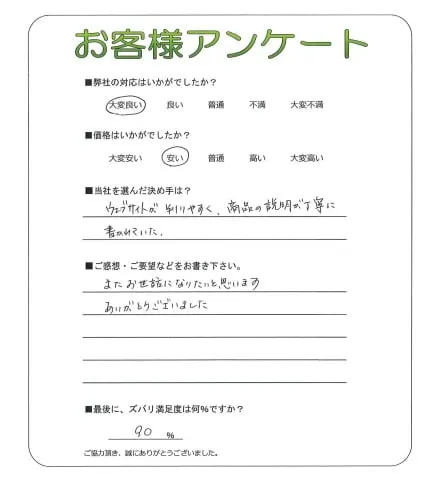 お客様アンケート
■弊社の対応はいかがでしたか？
大変良い 良い 普通 不満 大変不満
■価格はいかがでしたか？
大変安い 安い 普通 高い 大変高い
■当社を選んだ決め手は？
ウェブサイトが判りやすく、商品の説明が丁寧に
書かれていた。
■ご感想・ご要望などをお書き下さい。
またお世話になりたいと思います
ありがとうございました
■最後に、ズバリ満足度は何％ですか？
90 ％
ご協力頂き、誠にありがとうございました。